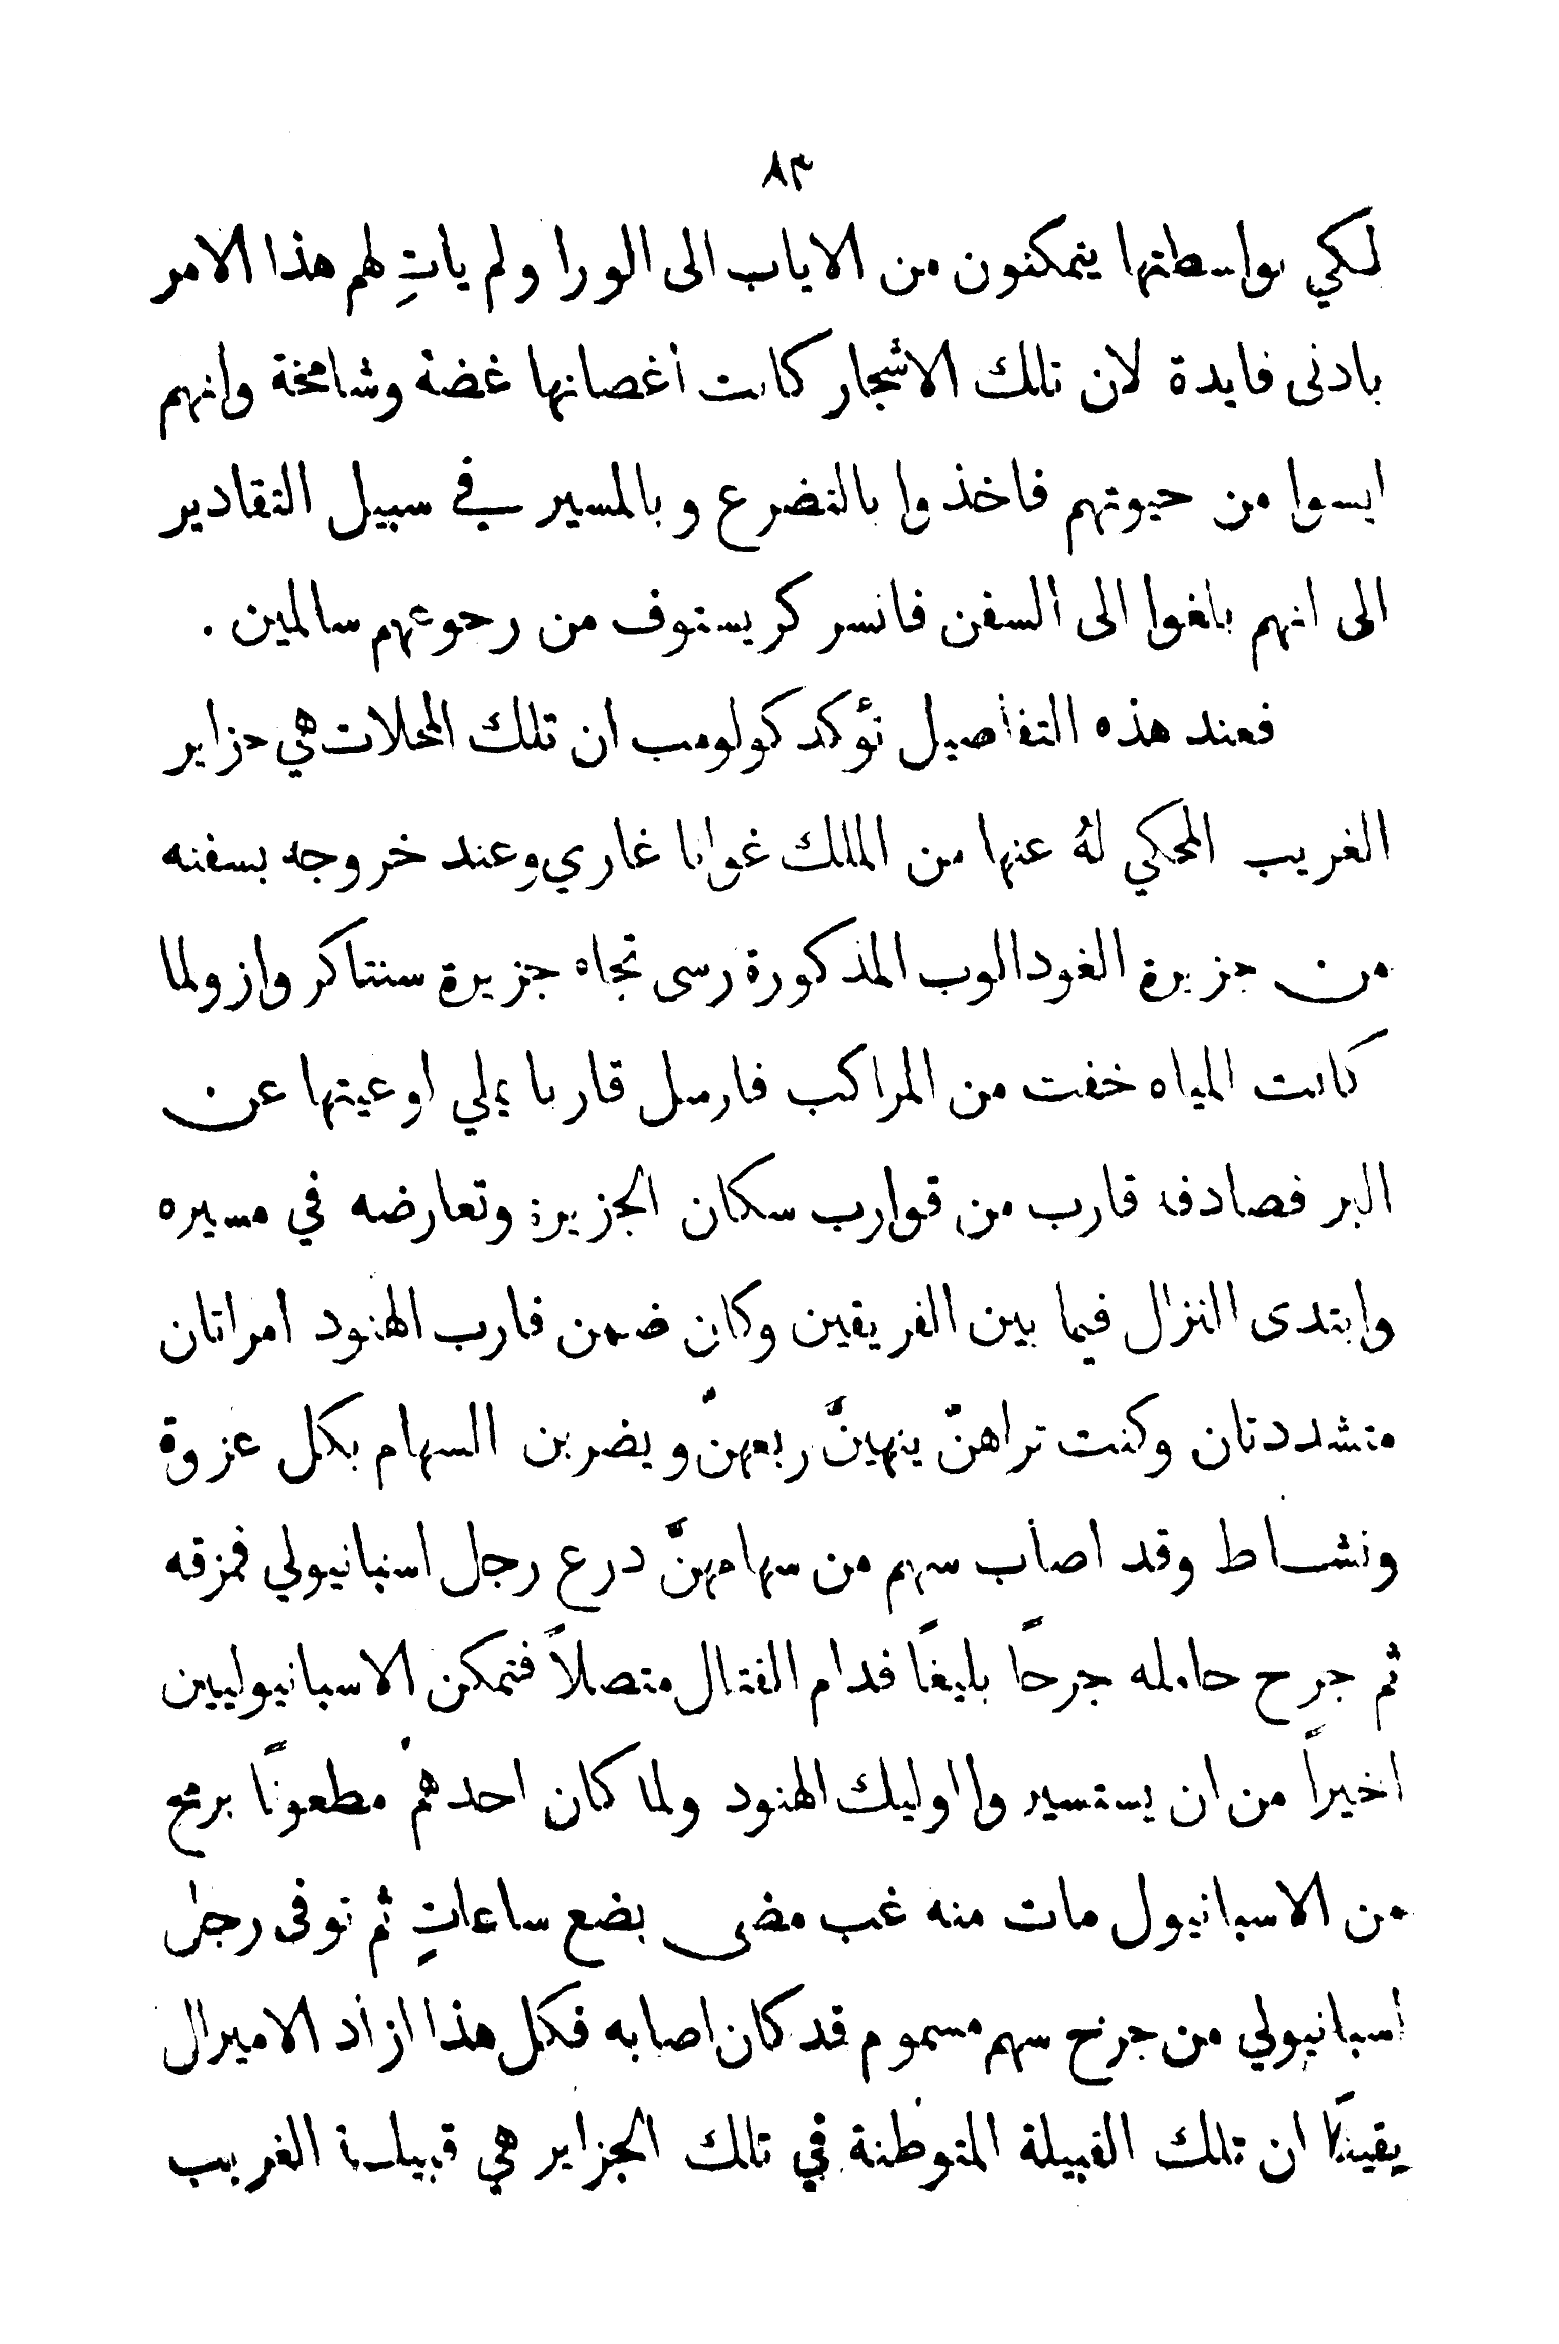 ٨٣
لكي بواسطتها يتمكنون من الاياب الى الورا ولم ياتِ لهم هذا الامر
بادنى فايدة لان تلك الاشجار كانت أغصانها غضة وشامخة وانهم
ايسوا من حيوتهم فاخذوا بالتضرع وبالمسير في سبيل التقادير
الى انهم بلغوا الى السفن فانسر كريستوف من رجوعهم سالمين .
فعند هذه التفاصيل تؤكد كولومب ان تلك المحلات هي جزاير
الغريب المحكي لهُ عنها من الملك غوانا غاري وعند خروجه بسفنه
من جزيرة الغودالوب المذكورة رسى تجاه جزيرة سنتاكرواز ولما
كانت المياه خفت من المراكب فارسل قاربا يملي اوعيتها عن
البر فصادف قارب من قوارب سكان الجزيرة وتعارضه في مسيره
وابتدى النزال فيما بين الفريقين وكان ضمن قارب الهنود امراتان
متشددتان وكنت تراهنّ ينهينَّ ربعهنّ ويضربن السهام بكل عزوة
ونشاط وقد اصاب سهم من سهامهنَّ درع رجل اسبانيولي فمزقه
ثم جرح حامله جرحًا بليغًا فدام القتال متصلاً فتمكن الاسبانيوليين
اخيراً من ان يستسيروا اوليك الهنود ولما كان احدهم مطعونًا برمح
من الاسبانيول مات منه غب مضى بضع ساعاتٍ ثم توفى رجل
اسبانيولي من جرح سهم مسموم قد كان اصابه فكل هذا ازاد الاميرال
يقينًا ان تلك القبيلة المتوطنة في تلك الجزاير هي قبيلة الغريب